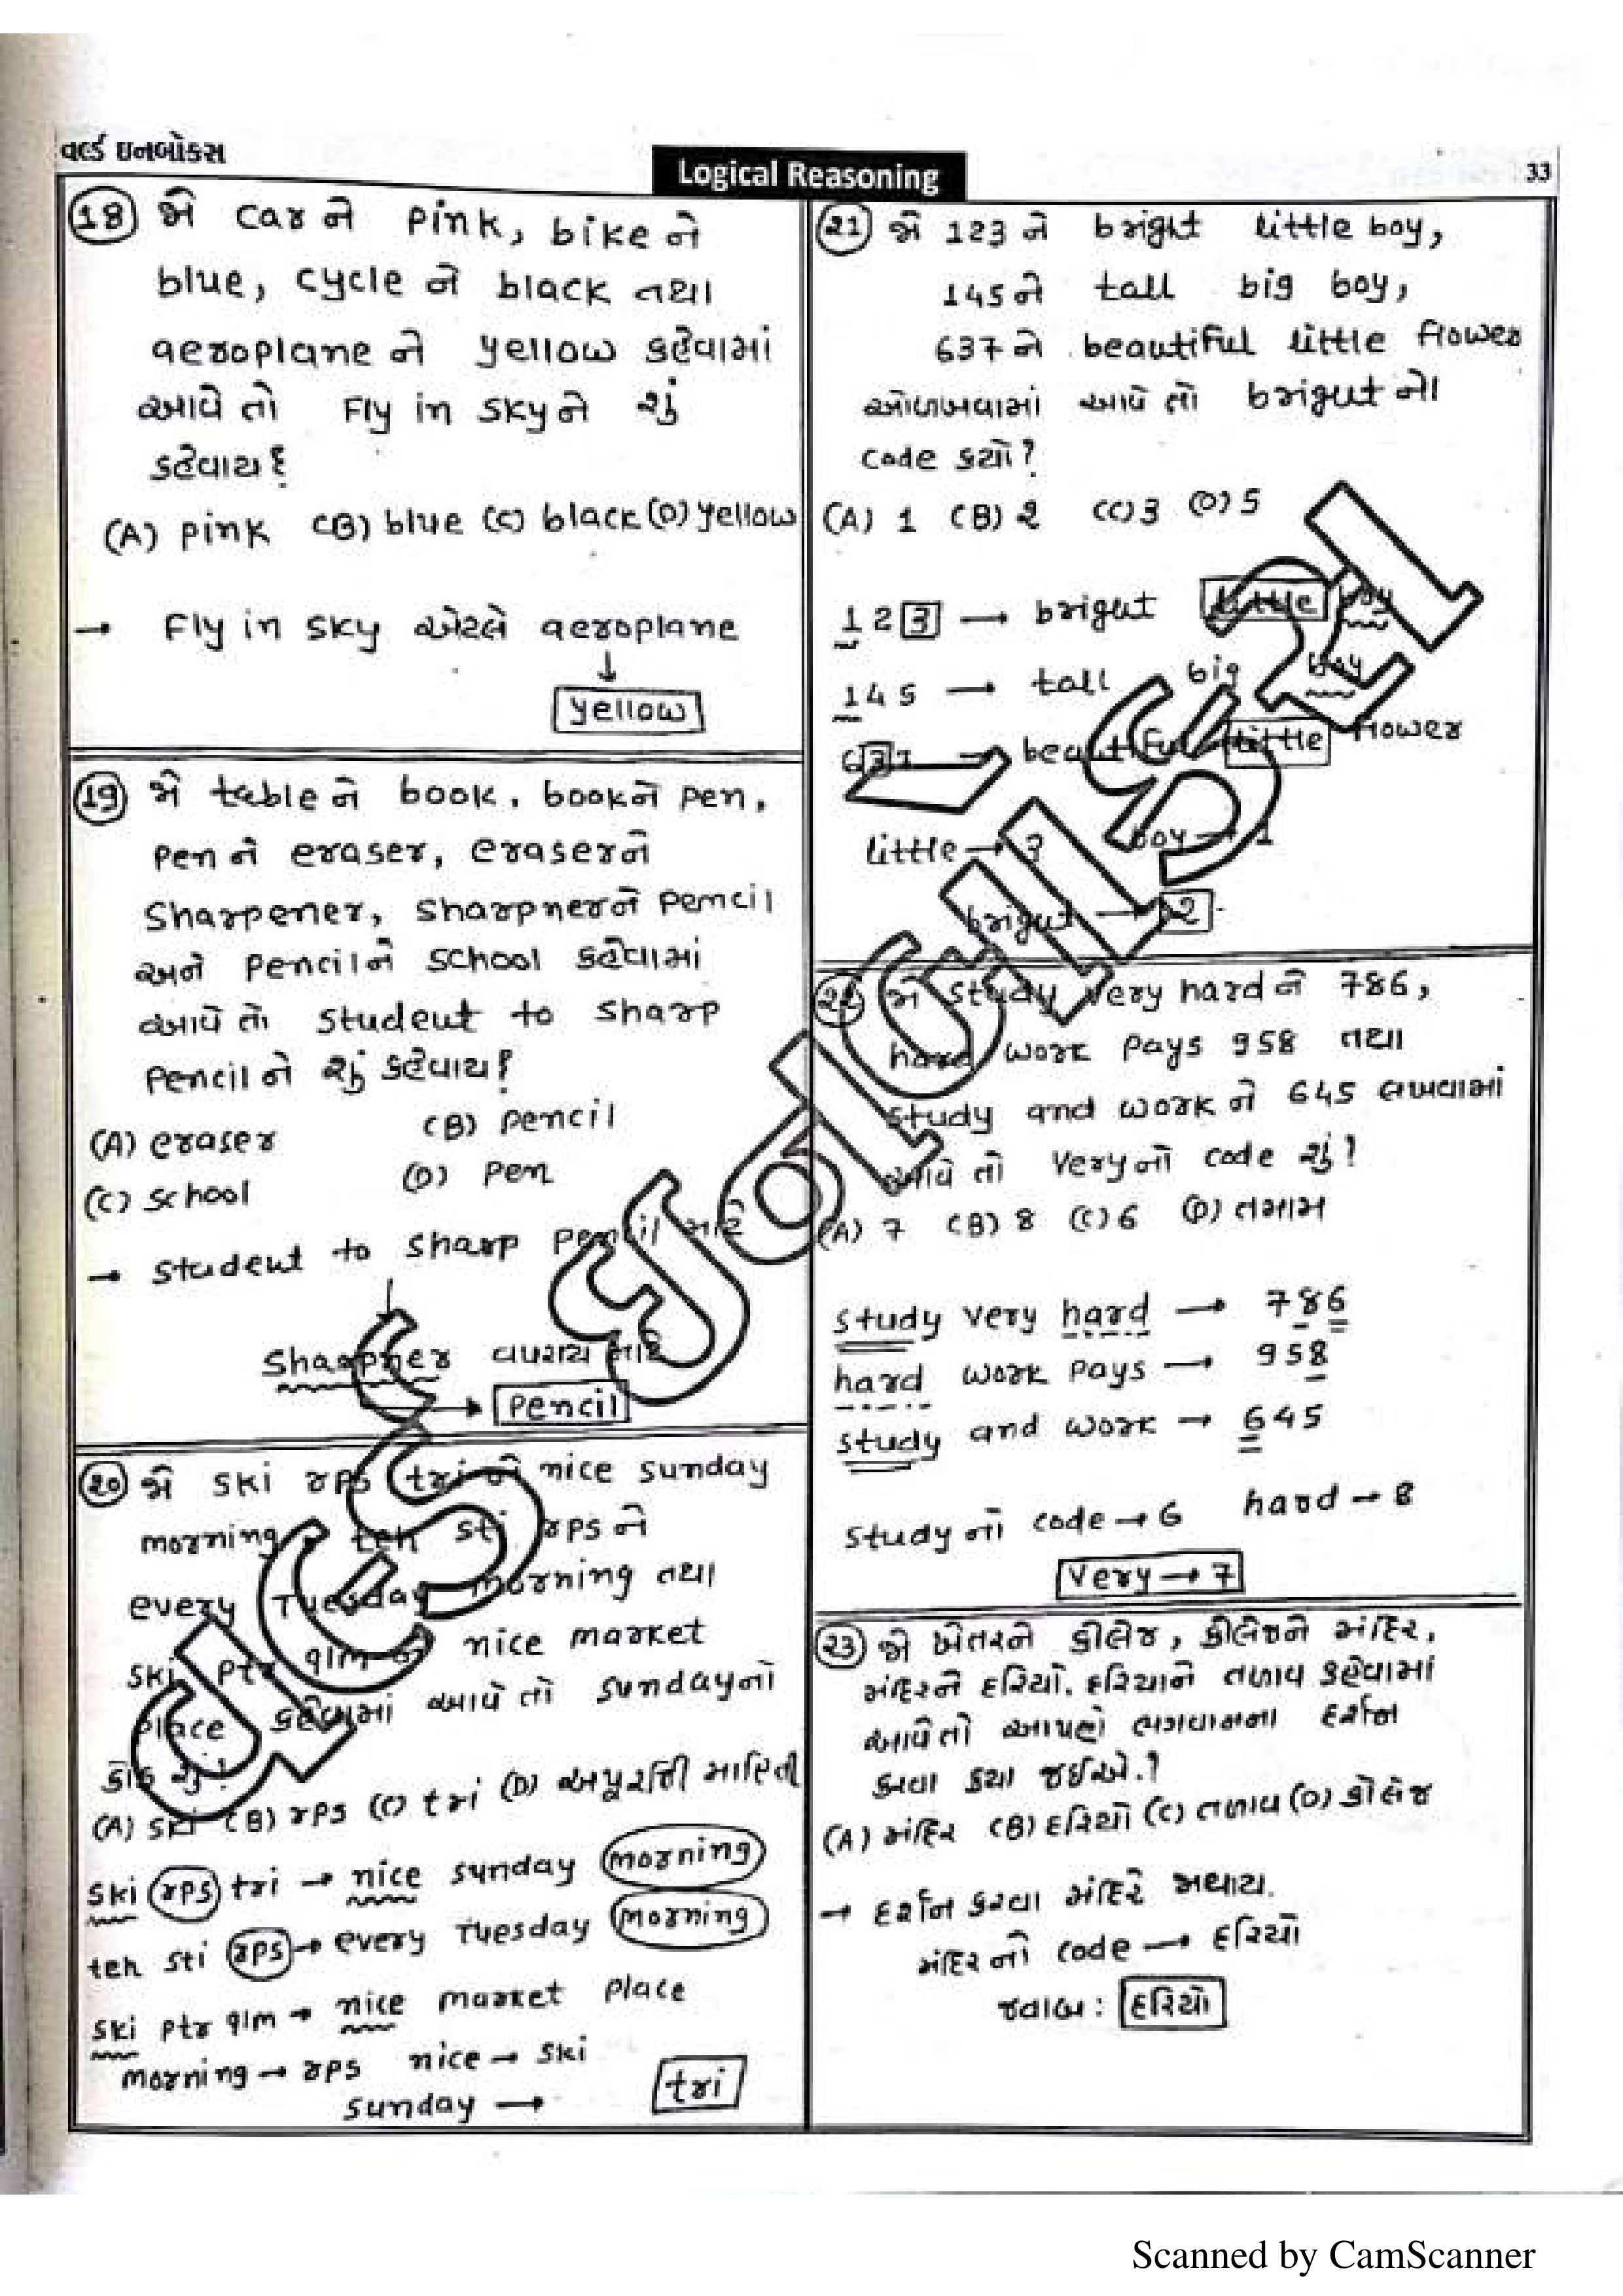 વર્લ્ડ ઇનબોક્સ
Logical Reasoning
33
18 જો car ને pink, bike ને
blue, cycle ને black તથા
aeroplane ને yellow કહેવામાં
આવે તો Fly in sky ને શું
કહેવાય?
(A) pink (B) blue (C) black (D) yellow
→ Fly in sky એટલે aeroplane
↓
yellow
19 જો table ને book, book ને pen,
pen ને eraser, eraser ને
Sharpener, sharpner ને pencil
અને pencil ને school કહેવામાં
આવે તો student to sharp
pencil ને શું કહેવાય?
(A) eraser (B) pencil
(C) school (D) pen
→ student to sharp pencil માટે
↓
Sharpner વપરાય માટે
→ pencil
20 જો ski rps tri ને nice sunday
morning, teh sti rps ને
every Tuesday morning તથા
ski ptr qlm ને nice market
place કહેવામાં આવે તો sunday નો
કોડ શું?
(A) ski (B) rps (C) tri (D) અપૂરતી માહિતી
ski rps tri → nice sunday morning
teh sti rps → every Tuesday morning
ski ptr qlm → nice market place
morning → rps nice → ski
sunday → tri
21 જો 123 ને bright little boy,
145 ને tall big boy,
637 ને beautiful little flower
ઓળખવામાં આવે તો bright નો
code કયો?
(A) 1 (B) 2 (C) 3 (D) 5
123 → bright little boy
145 → tall big boy
637 → beautiful little flower
little → 3 boy → 1
bright → 2
22 જો study very hard ને 786,
hard work pays 958 તથા
study and work ને 645 લખવામાં
આવે તો very નો code શું?
(A) 7 (B) 8 (C) 6 (D) તમામ
study very hard → 786
hard work pays → 958
study and work → 645
study નો code → 6 hard → 8
very → 7
23 જો ખેતરને કોલેજ, કોલેજને મંદિર,
મંદિરને દરિયો, દરિયાને તળાવ કહેવામાં
આવે તો આપણે ભગવાનના દર્શન
કરવા કયા જઈએ?
(A) મંદિર (B) દરિયો (C) તળાવ (D) કોલેજ
→ દર્શન કરવા મંદિરે જવાય.
મંદિર નો code → દરિયો
જવાબ: દરિયો
Scanned by CamScanner